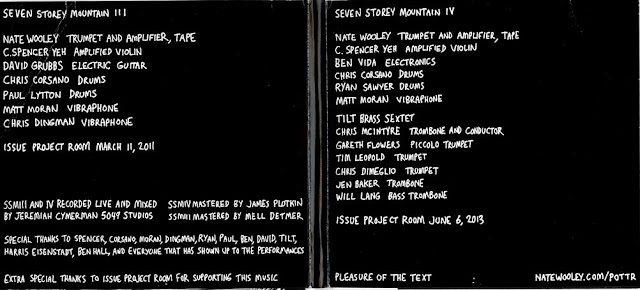 SEVEN STOREY MOUNTAIN III
NATE WOOLEY TRUMPET AND AMPLIFIER, TAPE
C.SPENCER YEH AMPLIFIED VIOLIN
DAVID GRUBBS ELECTRIC GUITAR
CHRIS CORSANO DRUMS
PAUL LYTTON DRUMS
MATT MORAN VIBRAPHONE
CHRIS DINGMAN VIBRAPHONE
ISSUE PROJECT ROOM MARCH 11, 2011
SSMIII AND IV RECORDED LIVE AND MIXED
BY JEREMIAH CYMERMAN 5049 STUDIOS
SSMIV MASTERED BY JAMES PLOTKIN
SSMIII MASTERED BY MELL DETMER
SPECIAL THANKS TO SPENCER, CORSANO, MORAN, DINGMAN, RYAN, PAUL, BEN, DAVID, TILT,
HARRIS EISENSTADT, BEN HALL, AND EVERYONE THAT HAS SHOWN UP TO THE PERFORMANCES
EXTRA SPECIAL THANKS TO ISSUE PROJECT ROOM FOR SUPPORTING THIS MUSIC
SEVEN STOREY MOUNTAIN IV
NATE WOOLEY TRUMPET AND AMPLIFIER, TAPE
C. SPENCER YEH AMPLIFIED VIOLIN
BEN VIDA ELECTRONICS
CHRIS CORSANO DRUMS
RYAN SAWYER DRUMS
MATT MORAN VIBRAPHONE
TILT BRASS SEXTET
CHRIS MCINTYRE TROMBONE AND CONDUCTOR
GARETH FLOWERS PICCOLO TRUMPET
TIM LEOPOLD TRUMPET
CHRIS DIMEGLIO TRUMPET
JEN BAKER TROMBONE
WILL LANG BASS TROMBONE
ISSUE PROJECT ROOM JUNE 6, 2013
PLEASURE OF THE TEXT
NATEWOOLEY.COM/POTTR